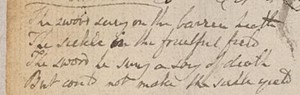 The sword sung on the barren heath
The sickle in the fruitful field
The sword he sung a song of death
But could not make the sickle yield